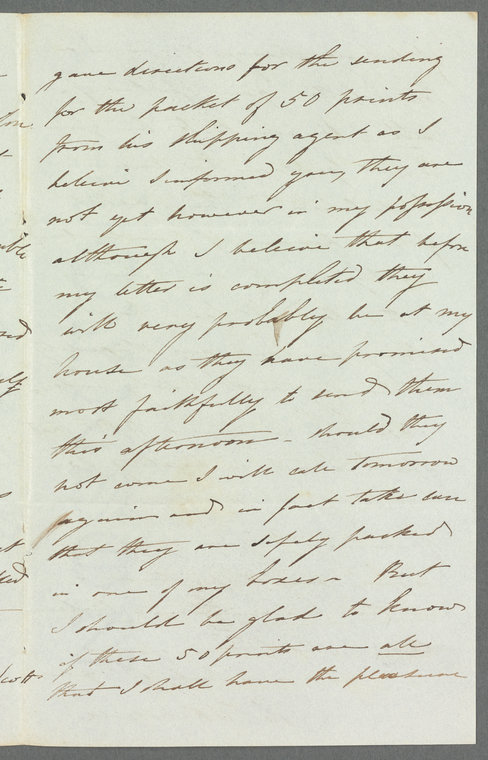 gave directions for the sending
for the packet of 50 prints
from his shipping agent as I
believe I informed you, they are
not yet however in my possession
although I believe that before
my letter is completed they
will very probably be at my
house as they have promised
most faithfully to send them
this afternoon - should they
not come I will call tomorrow
again and in fact take care
that they are safely packed
in one of my boxes - But
I should be glad to know
if these 50 prints are all
that I shall have the pleasure